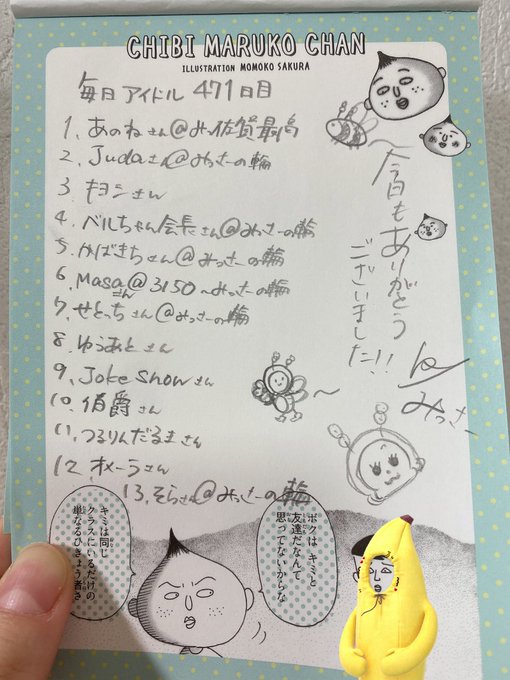 CHIBI MARUKO CHAN
ILLUSTRATION MOMOKO SAKURA
毎日アイドル 471日目
1、あのねさん@みっ佐賀最高
2、Judaさん@みっさーの輪
3 キヨシさん
4、ベルちゃん会長さん@みっさーの輪
5、かばきちさん@みっさーの輪
6、Masaさん@3150～みっさーの輪
7、せとっちさん@みっさーの輪
8、ゆうあとさん
9、Joke Showさん
10、伯爵さん
11、つるりんだるまさん
12、オメーラさん
13、そらさん@みっさーの輪
～今日もありがとう
ございました!!
by
みっさー
ボクは、キミと
友達だなんて
思ってないからな
キミは同じ
クラスにいるだけの
単なるひきょう者さ